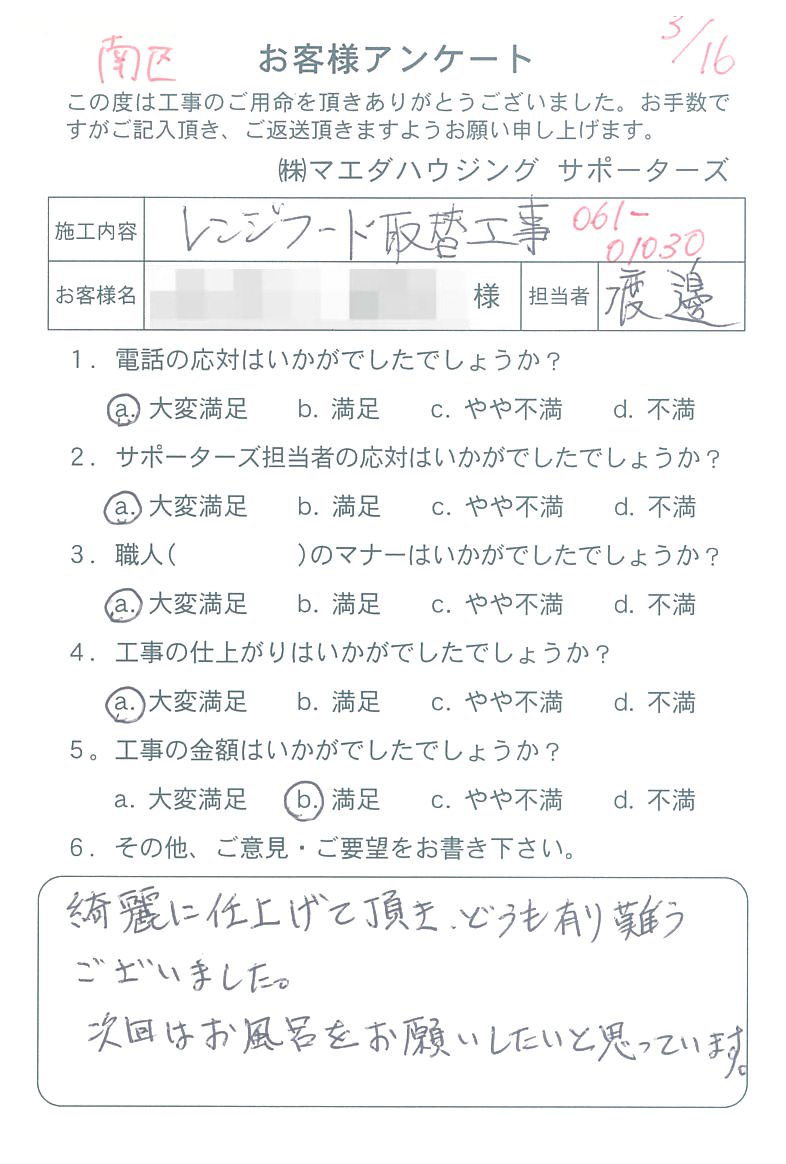 南区
お客様アンケート
3/16
この度は工事のご用命を頂きありがとうございました。お手数で
すがご記入頂き、ご返送頂きますようお願い申し上げます。
㈱マエダハウジング サポーターズ
施工内容 レンジフード取替工事 061-
01030
お客様名 様 担当者 渡邊
1. 電話の応対はいかがでしたでしょうか？
a. 大変満足 b. 満足 c. やや不満 d. 不満
2. サポーターズ担当者の応対はいかがでしたでしょうか？
a. 大変満足 b. 満足 c. やや不満 d. 不満
3. 職人( )のマナーはいかがでしたでしょうか？
a. 大変満足 b. 満足 c. やや不満 d. 不満
4. 工事の仕上がりはいかがでしたでしょうか？
a. 大変満足 b. 満足 c. やや不満 d. 不満
5。工事の金額はいかがでしたでしょうか？
a. 大変満足 b. 満足 c. やや不満 d. 不満
6. その他、ご意見・ご要望をお書き下さい。
綺麗に仕上げて頂き、どうも有り難う
ございました。
次回はお風呂をお願いしたいと思っています。